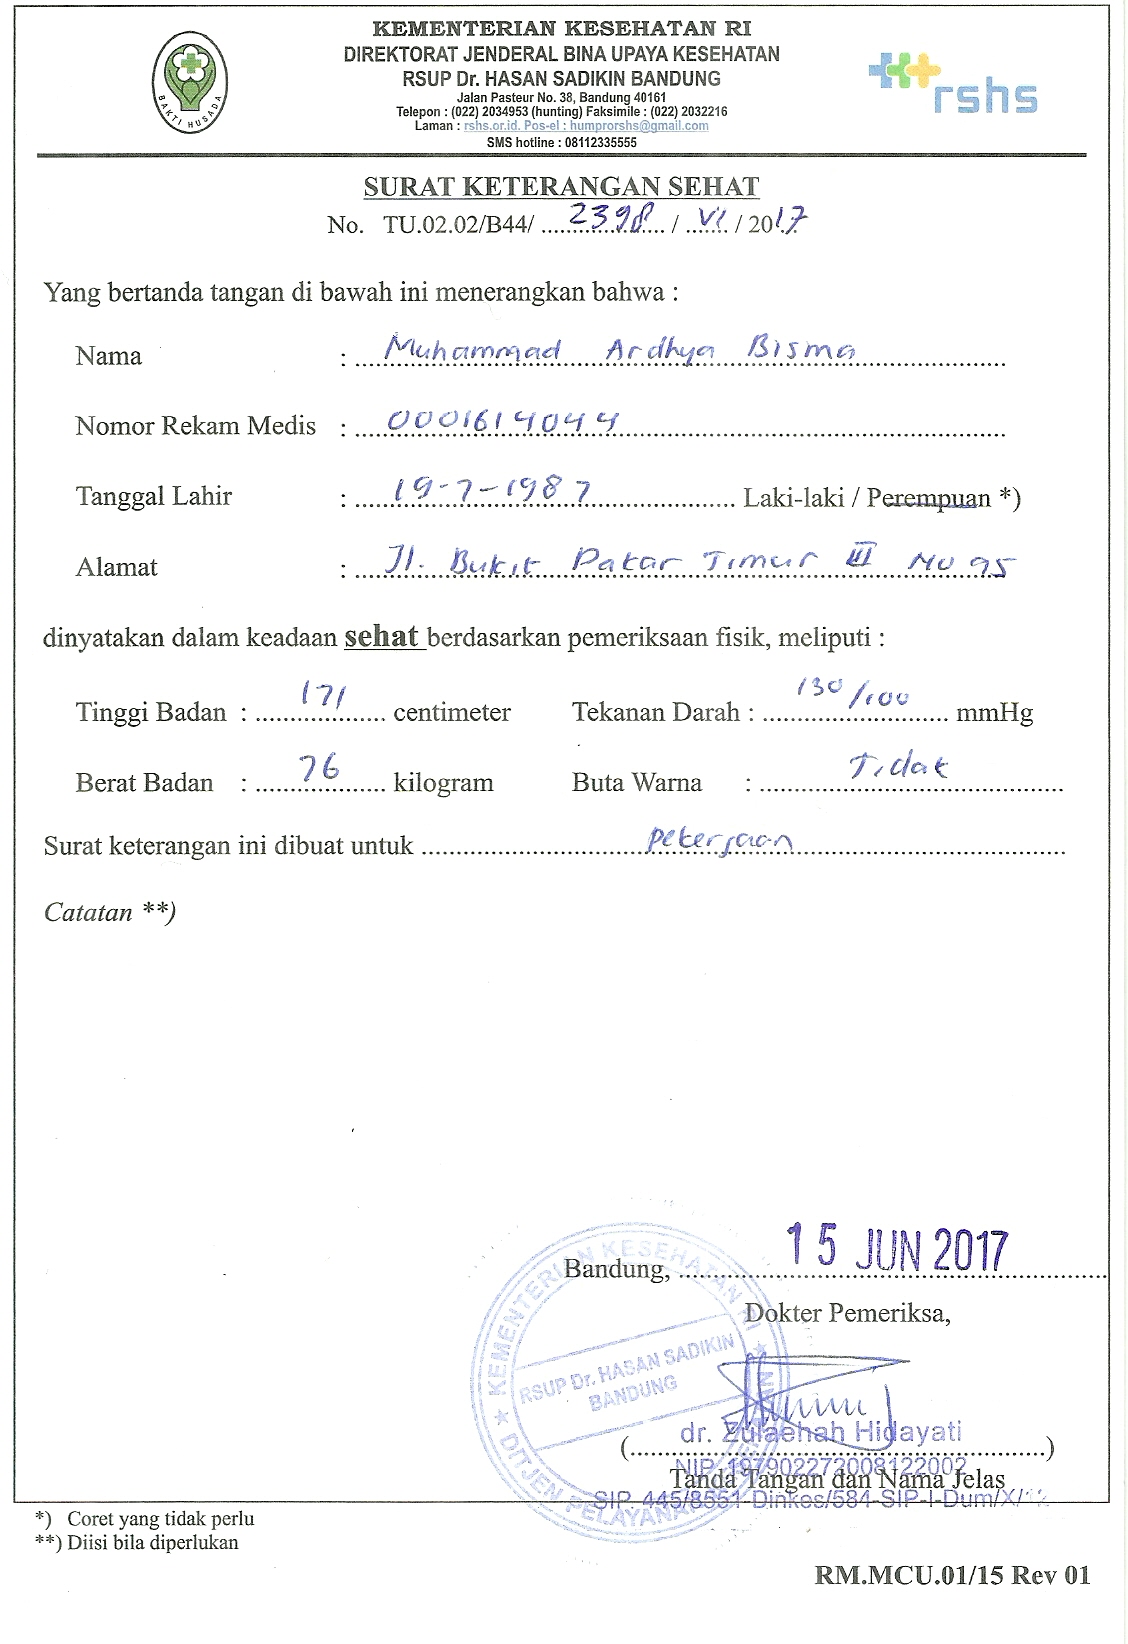 KEMENTERIAN KESEHATAN RI
DIREKTORAT JENDERAL BINA UPAYA KESEHATAN
RSUP Dr. HASAN SADIKIN BANDUNG
Jalan Pasteur No. 38, Bandung 40161
Telepon : (022) 2034953 (hunting) Faksimile : (022) 2032216
Laman : rshs.or.id. Pos-el : humprorshs@gmail.com
SMS hotline : 08112335555
BAKTI HUSADA
rshs
SURAT KETERANGAN SEHAT
No. TU.02.02/B44/ 2398 / VI / 2017
Yang bertanda tangan di bawah ini menerangkan bahwa :
Nama : Muhammad Ardhya Bisma
Nomor Rekam Medis : 0001614044
Tanggal Lahir : 19-7-1987 Laki-laki / Perempuan *)
Alamat : Jl. Bukit Pakar Timur III No 95
dinyatakan dalam keadaan sehat berdasarkan pemeriksaan fisik, meliputi :
Tinggi Badan : 171 centimeter Tekanan Darah : 130/100 mmHg
Berat Badan : 76 kilogram Buta Warna : Tidak
Surat keterangan ini dibuat untuk pekerjaan
Catatan **)
Bandung, 15 JUN 2017
Dokter Pemeriksa,
KEMENTERIAN KESEHATAN RI
RSUP Dr. HASAN SADIKIN
BANDUNG
DITJEN PELAYANAN KESEHATAN
dr. Zulaehah Hidayati
(......)
NIP. 197902272008122002
Tanda Tangan dan Nama Jelas
SIP. 445/8551-Dinkes/584-SIP-I-Dum/X/12
*) Coret yang tidak perlu
**) Diisi bila diperlukan
RM.MCU.01/15 Rev 01